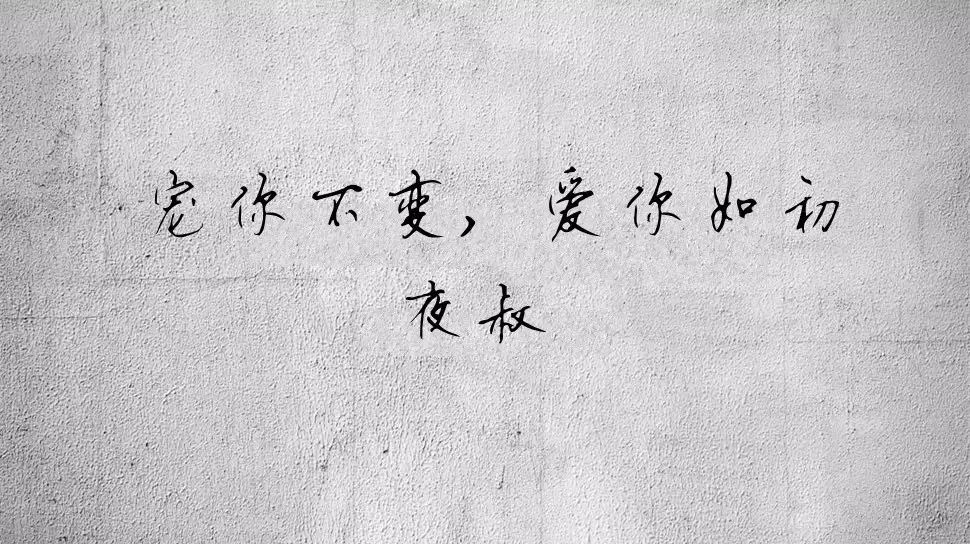 宠你不变，爱你如初
夜叔